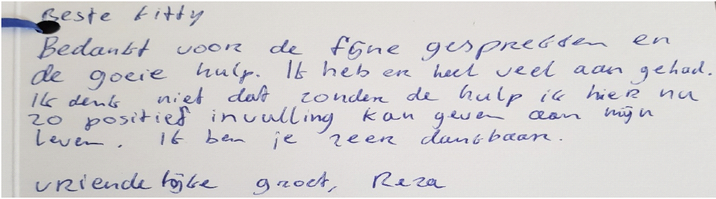 Beste Kitty
Bedankt voor de fijne gesprekken en
de goeie hulp. Ik heb er heel veel aan gehad.
Ik denk niet dat zonder de hulp ik hier nu
zo positief invulling kan geven aan mijn
leven. Ik ben je zeer dankbaar.
vriendelijke groet, Reza